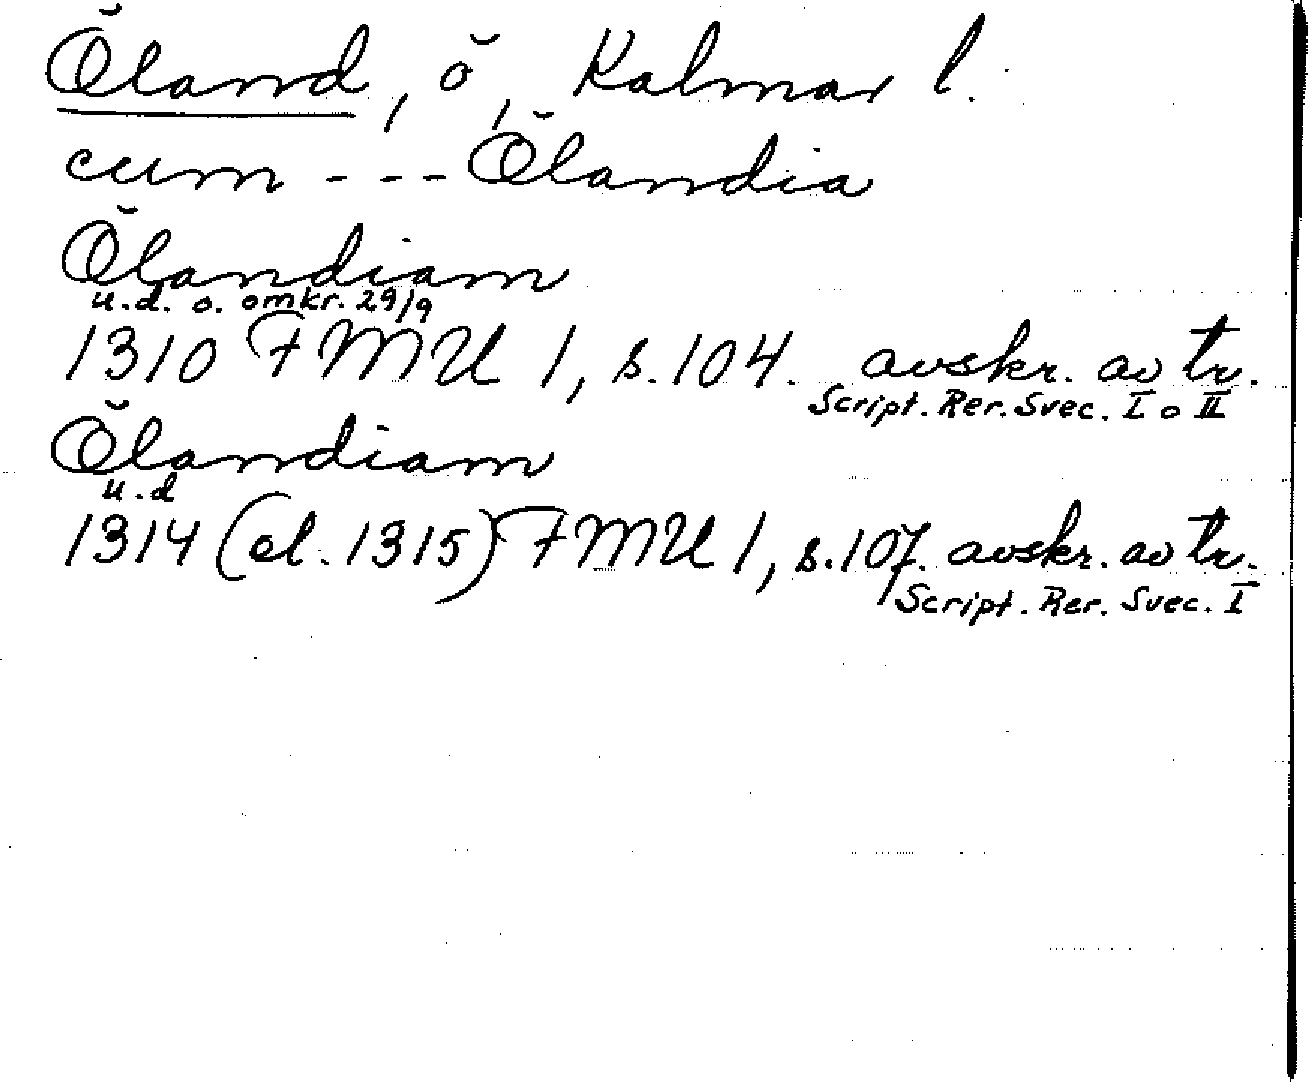 Öland, ö, Kalmar l.
cum --- Ölandia
Ölandiam
u.d. o. omkr. 29/9
1310 FMU 1, s.104. avskr. av tr.
Script. Rer. Svec. I o II
Ölandiam
u.d
1314 (el. 1315) FMU 1, s.107. avskr. av tr.
Script. Rer. Svec. I